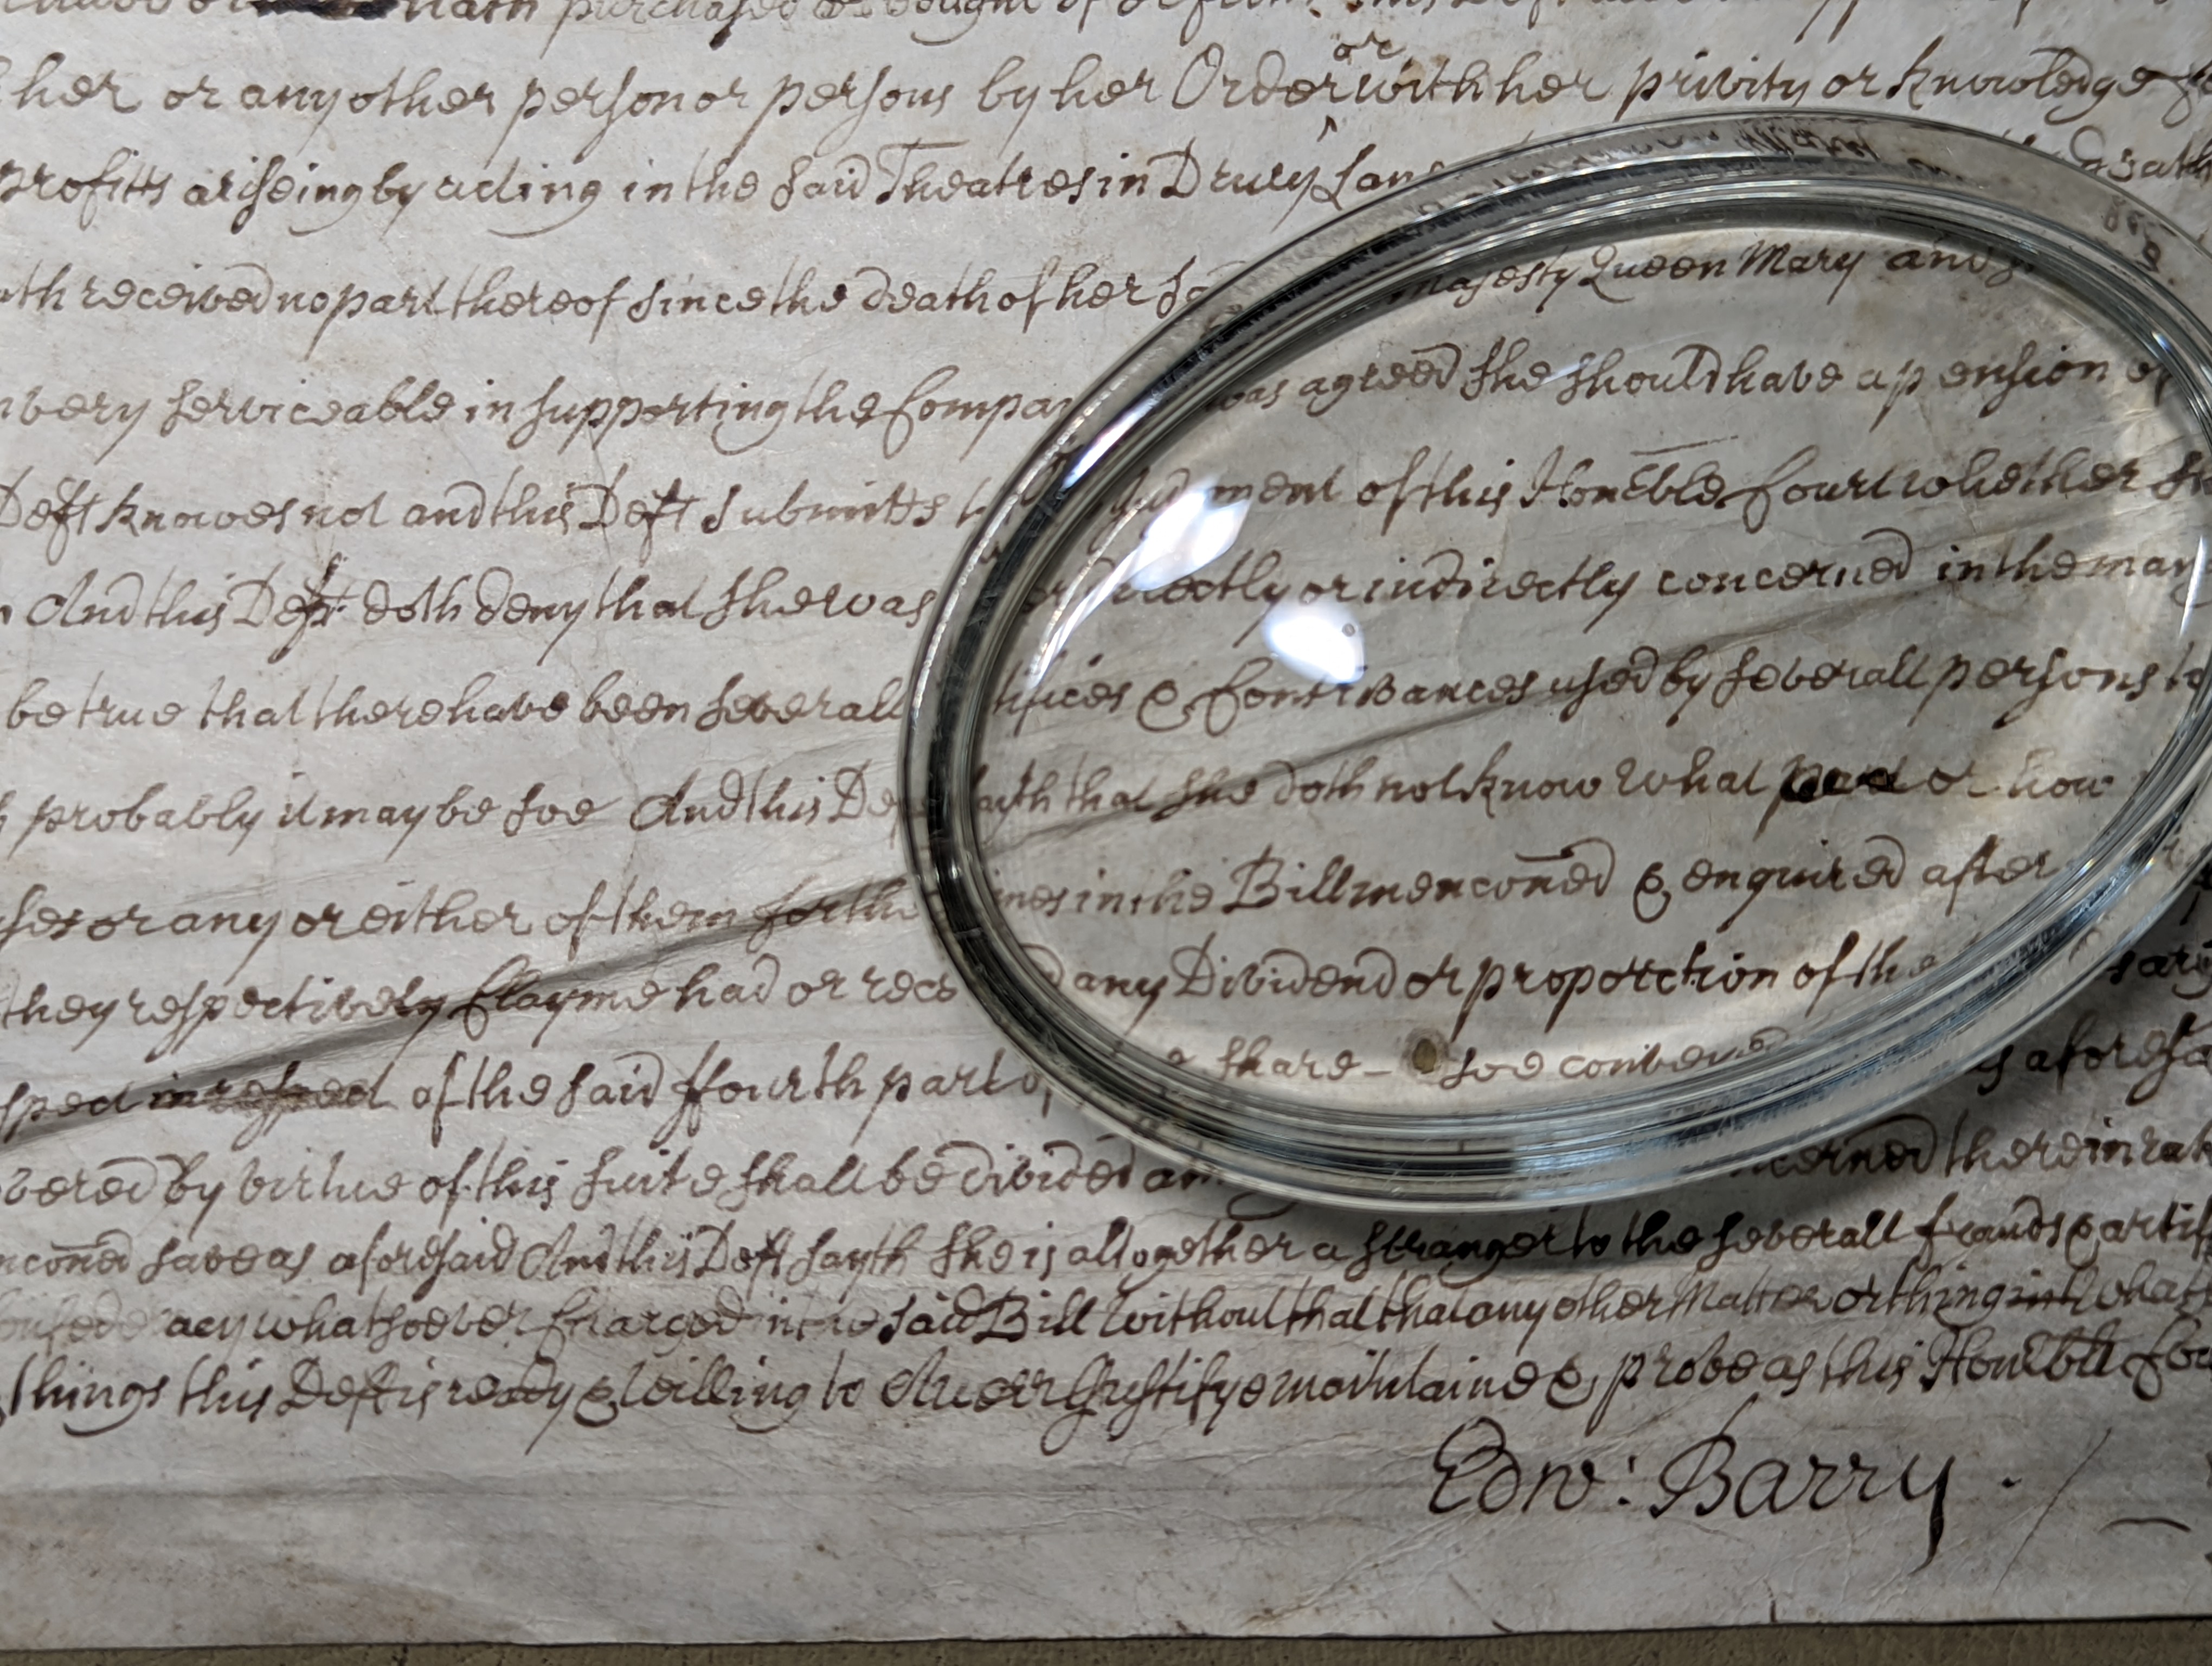 hath purchased or bought of
her or any other person or persons by her Order or with her privity or knowledge
profitts ariseing by acting in the said Theatres in Drury Lan
received no part thereof since the death of her Majesty Queen Mary and
very serviceable in supporting the Compa was agreed she should have a pension of
Deft knowes not and this Deft submitts ment of this Honoble Court whether
And this Deft doth deny that she was directly or indirectly concerned in the man
be true that there have been severall tifices & Contrivances used by severall persons to
probably it may be soe And this De aith that she doth not know what or how
ses or any or either of them for the mes in the Bill menconed & enquired after
they respectively Clayme had or rece d any Dividend or proporction of the
spect in respect of the said ffourth part o share - soe conveyed as aforesa
vered by virtue of this suite shall be divided am ncerned therein rat
nconed save as aforesaid And this Deft sayth she is altogether a stranger to the severall frauds & artif
acy whatsoever Charged in the said Bill Without that that any other Matter or thing in what
things this Deft is ready & Willing to Averr Justifye maintaine & prove as this Honoble Cou
Edw: Barry.